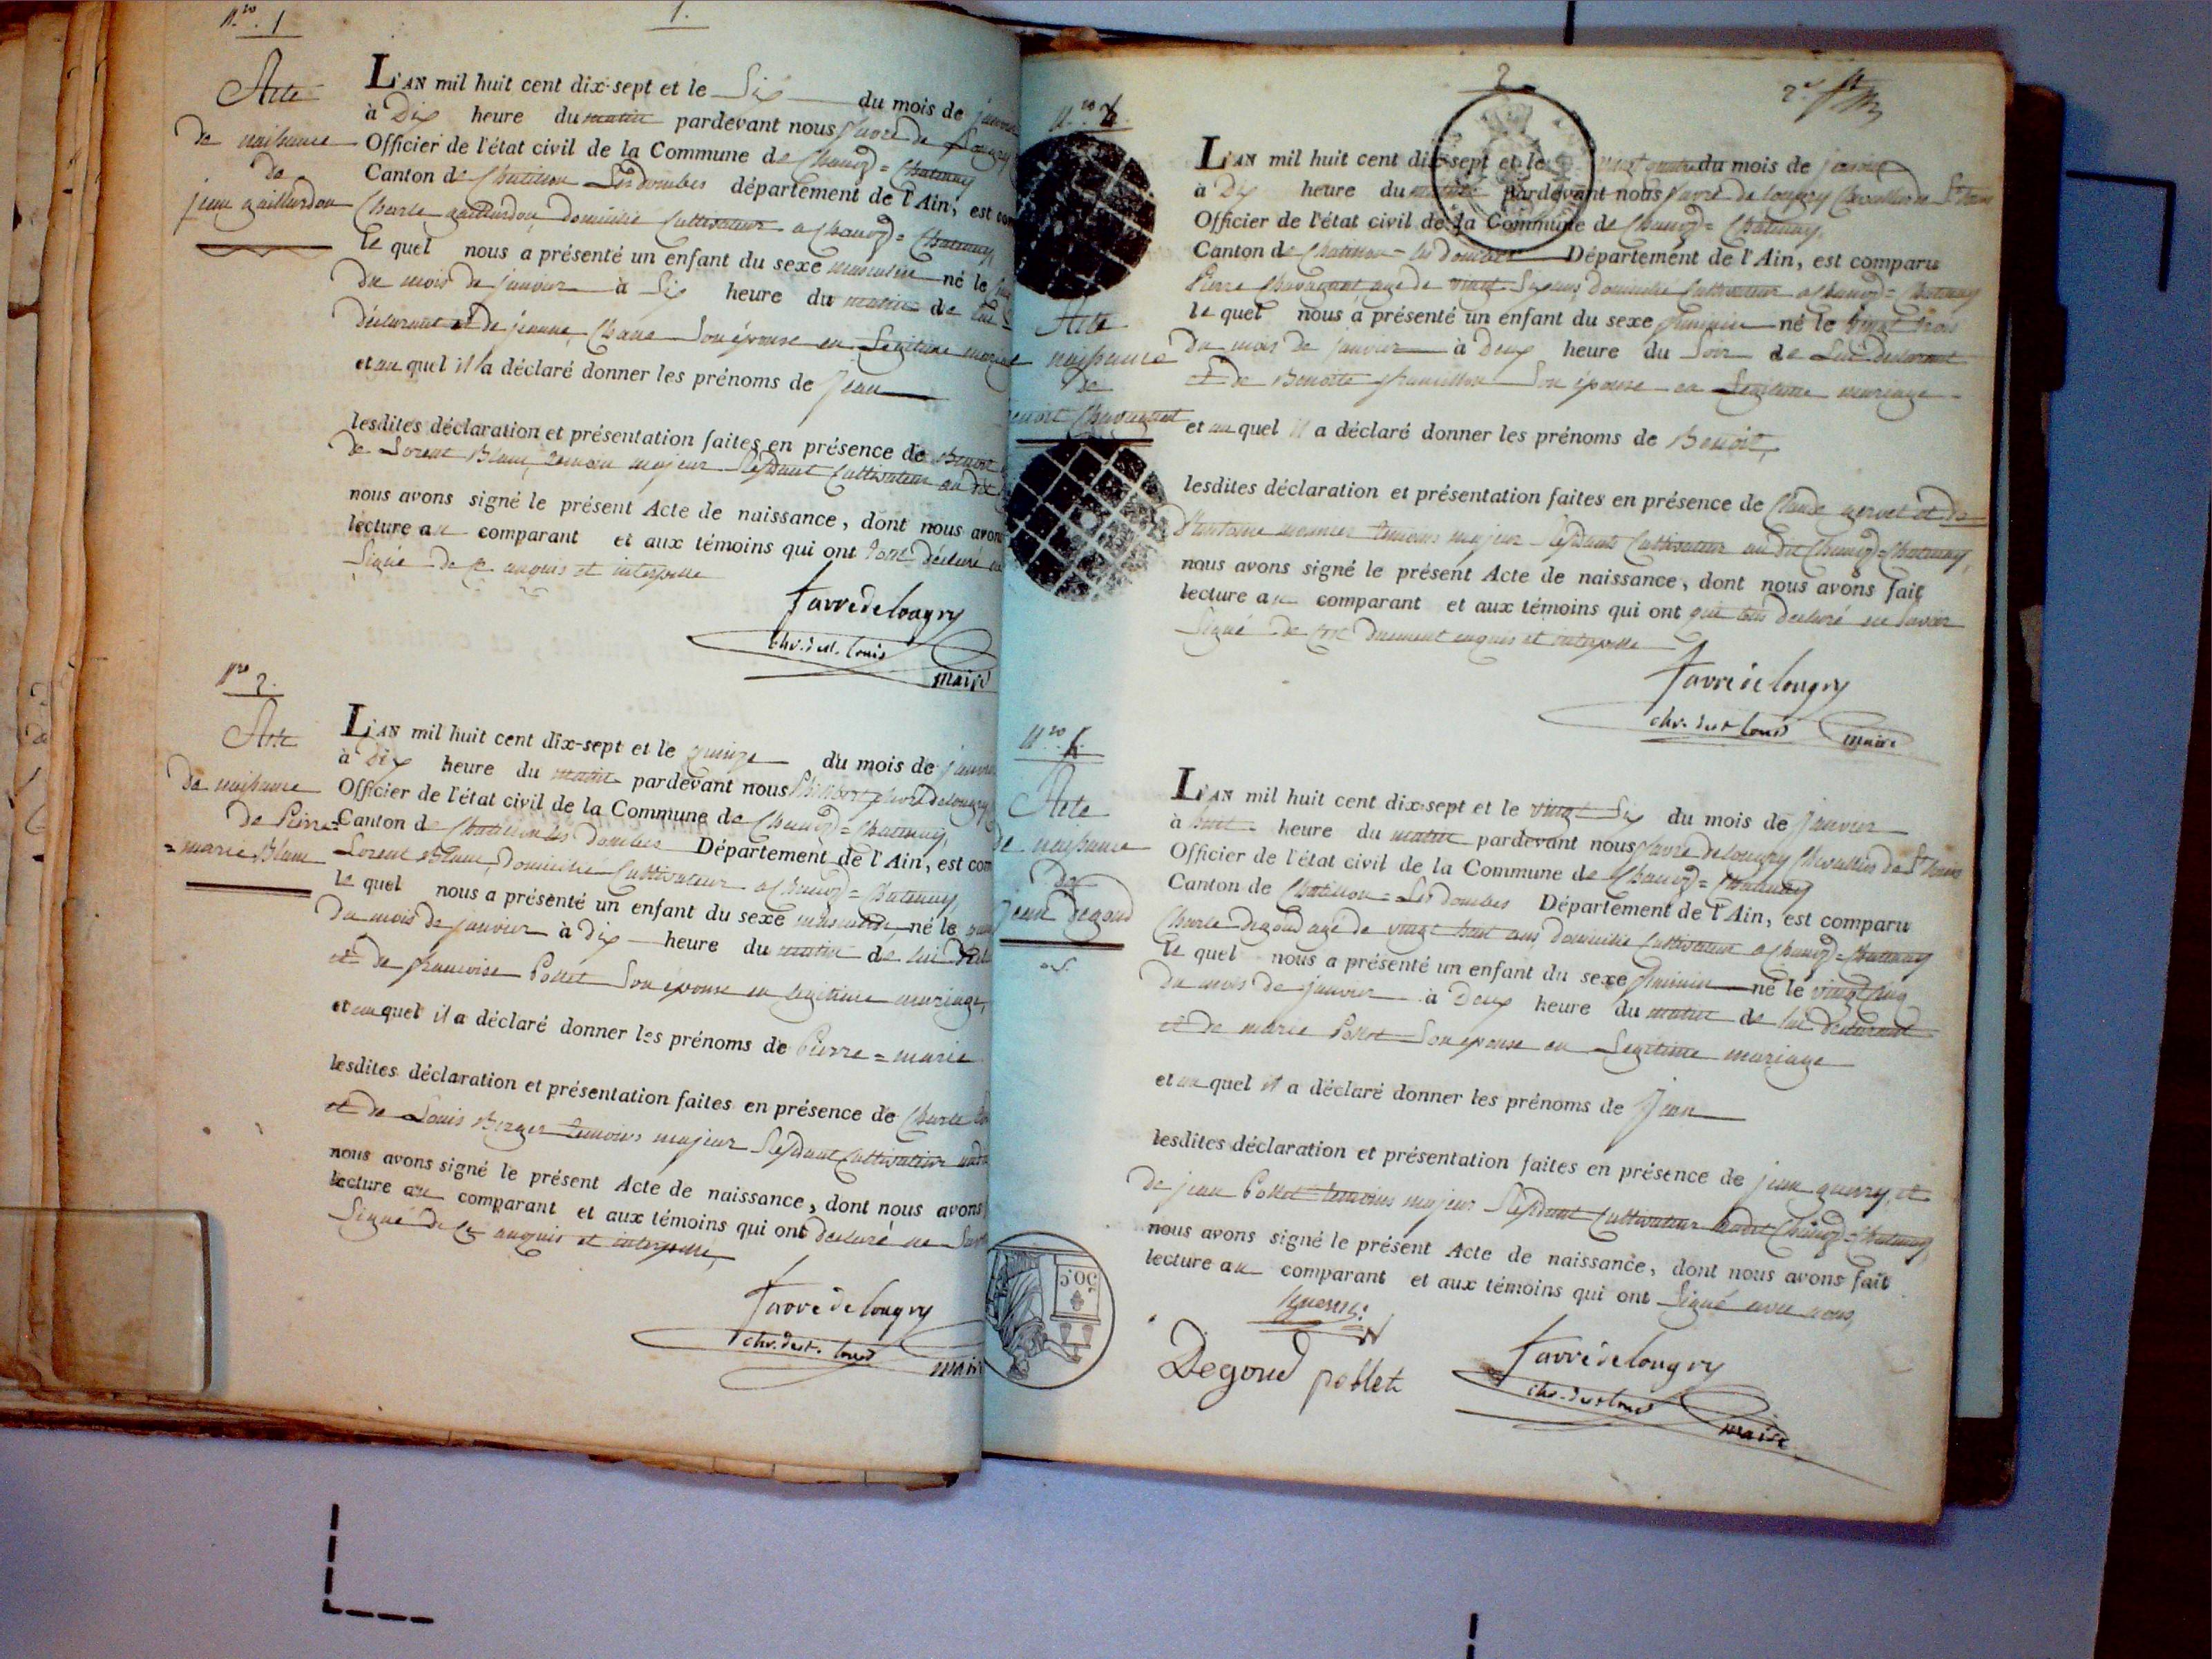 Nro. 1
1.
Acte
de naissance
de
jean gaillardon
L'AN mil huit cent dix-sept et le Six du mois de janvier
à Dix heure du matin pardevant nous favre de Longry
Officier de l'état civil de la Commune de Chanoz = Chatenay
Canton de Chatillon Les dombes département de l'Ain, est com
Charle gaillardon, domicilié Cultivateur a Chanoz = Chatenay,
le quel nous a présenté un enfant du sexe masculin né le
du mois de janvier à Six heure du matin de lui
déclarant et de jeanne Chane Son épouse en Legitime mariage
et au quel il a déclaré donner les prénoms de Jean
lesdites déclaration et présentation faites en présence de Benoit
de Lorent Blanc, temoin majeur Résidant Cultivateur au dit
nous avons signé le présent Acte de naissance, dont nous avons
lecture au comparant et aux témoins qui ont tous déclaré
Signé de ce enquis et interpellé
favre de longry
chr. de st. louis
maire
Nro 2.
Acte
de naissance
de Pierre
= marie Blanc
L'AN mil huit cent dix-sept et le quinze du mois de janvier
à Dix heure du matin pardevant nous Philibert favre de longry
Officier de l'état civil de la Commune de Chanoz = Chatenay,
Canton de Chatillon les Dombes Département de l'Ain, est com
Lorent Blanc, Domicilié Cultivateur a Chanoz = Chatenay,
le quel nous a présenté un enfant du sexe masculin né le
du mois de janvier à dix heure du matin de lui
et de francoise Pollet Son épouse en legitime mariage,
et au quel il a déclaré donner les prénoms de Pierre = marie
lesdites déclaration et présentation faites en présence de Charle
et de Louis Berger temoins majeur Résidant Cultivateur
nous avons signé le présent Acte de naissance, dont nous avons
lecture au comparant et aux témoins qui ont déclaré ne
Signé de ce enquis et interpellé,
favre de longry
chr. de st. louis
maire
2.
2e
Nro.
Acte
naissance
de
Benoit Chavagnat
L'AN mil huit cent dix-sept et le vingt quatre du mois de janvier
à Dix heure du matin pardevant nous favre de longry Chevallier de St. Louis
Officier de l'état civil de la Commune de Chanoz = Chatenay,
Canton de Chatillon = les Dombes Département de l'Ain, est comparu
Pierre Chavagnat agé de vingt Six ans Domicilié Cultivateur a Chanoz = Chatenay
le quel nous a présenté un enfant du sexe féminin né le vingt trois
du mois de janvier à Deux heure du Soir de Lui declarant
et de Benoite Son épouse en Legitime mariage
et au quel il a déclaré donner les prénoms de Benoit,
lesdites déclaration et présentation faites en présence de Claude et de
temoins majeur Résidants Cultivateur au dit Chanoz = Chatenay,
nous avons signé le présent Acte de naissance, dont nous avons fait
lecture au comparant et aux témoins qui ont tous declaré ne Savoir
Signé de ce Duement enquis et interpellé
favre de longry
chr. de st louis
maire
Nro. 4.
Acte
de naissance
de
Jean degoud
L'AN mil huit cent dix-sept et le vingt Six du mois de janvier
à huit heure du matin pardevant nous favre de longry Chevallier de St. Louis
Officier de l'état civil de la Commune de Chanoz = Chatenay
Canton de Chatillon = Les Dombes Département de l'Ain, est comparu
Charle degoud agé de vingt huit ans domicilié Cultivateur a Chanoz = Chatenay
le quel nous a présenté un enfant du sexe féminin né le vingt cinq
du mois de janvier à Deux heure du matin de lui déclarant
et de marie Pollet Son epouse en Legitime mariage
et au quel il a déclaré donner les prénoms de Jean
lesdites déclaration et présentation faites en présence de jean guerry, et
de jean Pollet temoins majeur Résidant Cultivateur audit Chanoz = Chatenay,
nous avons signé le présent Acte de naissance, dont nous avons fait
lecture au comparant et aux témoins qui ont Signé avec nous,
50 c.
Degoud pollet
favre de longry
chr. de st louis
maire